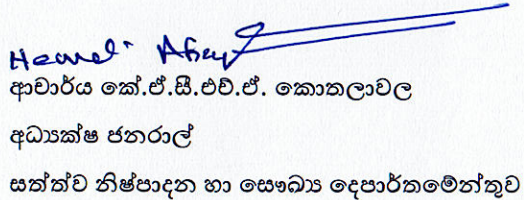 ආචාර්ය කේ.ඒ.සී.එච්.ඒ. කොතලාවල
අධ්‍යක්ෂ ජනරාල්
සත්ත්ව නිෂ්පාදන හා සෞඛ්‍ය දෙපාර්තමේන්තුව